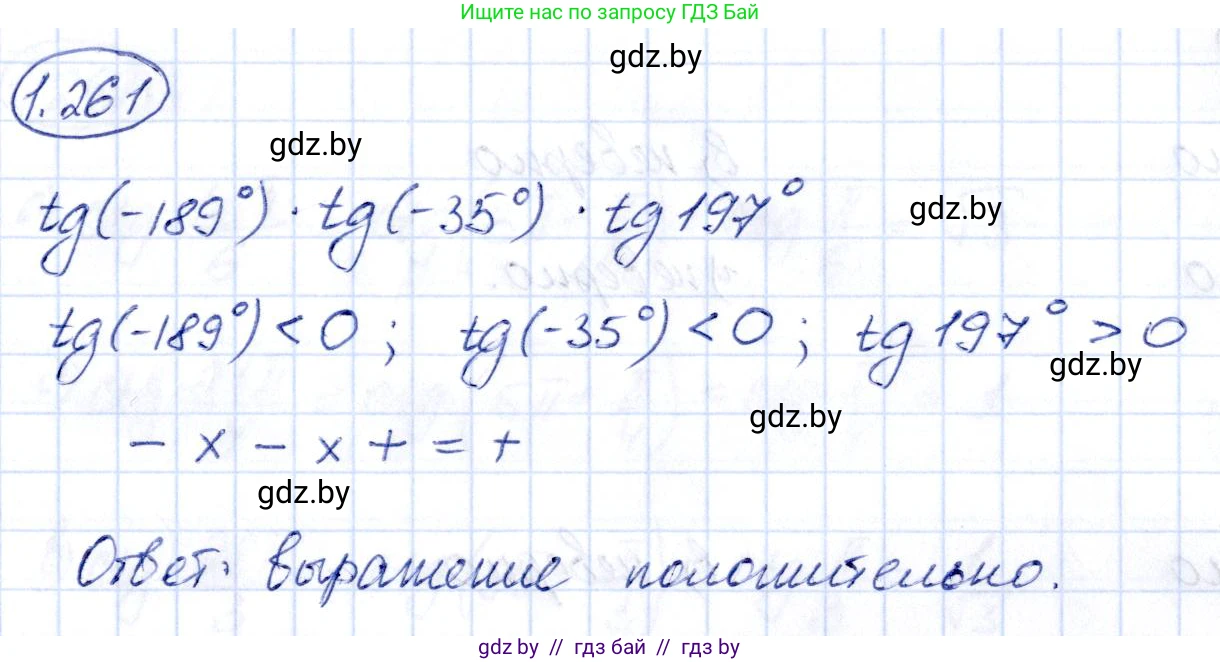 Ищите нас по запросу ГДЗ Бай
gdz.by
1.261
gdz.by
tg(-189°) · tg(-35°) · tg 197°
gdz.by
tg(-189°) < 0 ; tg(-35°) < 0 ; tg 197° > 0
gdz.by
gdz.by
- x - x + = +
gdz.by
Ответ: выражение положительно.
gdz.by // гдз бай // гдз by